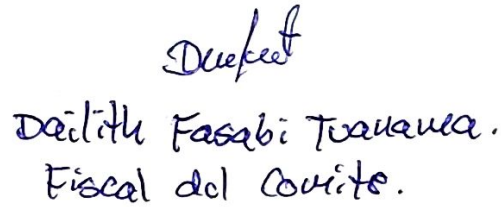 Dailith Fasabi Tuanama.
Fiscal del Comite.